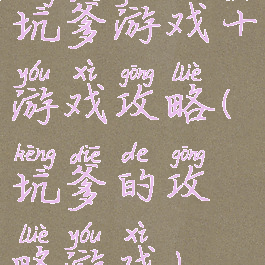 坑爹游戏十
yóu xì gōng lüè
游戏攻略(
kēng diē de gōng
坑爹的攻
lüè yóu xì
略游戏)